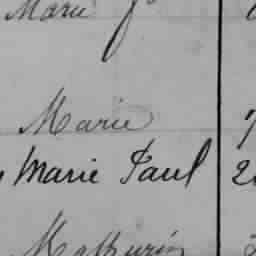 Marie
Marie
Marie Paul 2
Mathurin